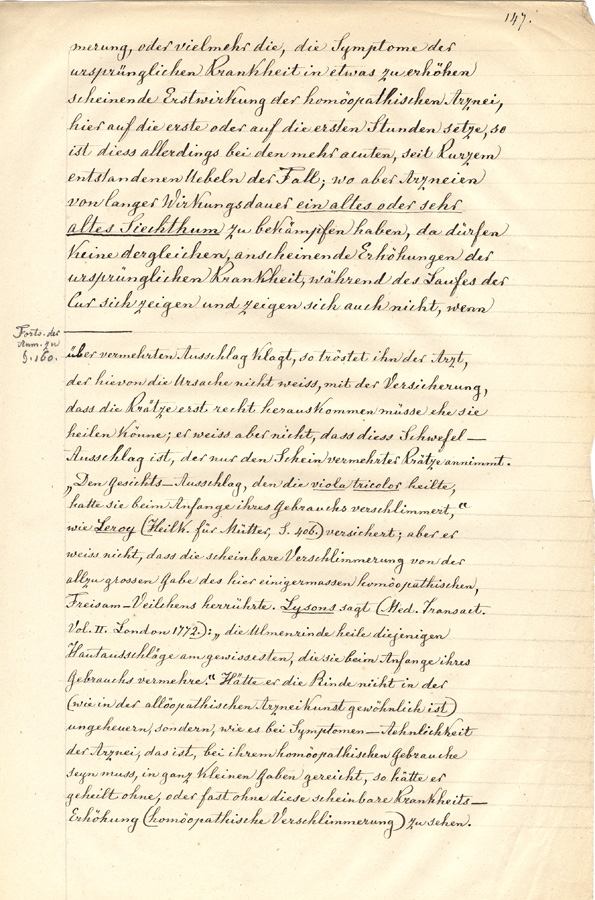 147.
merung, oder vielmehr die, die Symptome der
ursprünglichen Krankheit in etwas zu erhöhen
scheinende Erstwirkung der homöopathischen Arznei,
hier auf die erste oder auf die ersten Stunden setze, so
ist diess allerdings bei den mehr acuten, seit Kurzem
entstandenen Uebeln der Fall; wo aber Arzneien
von langer Wirkungsdauer ein altes oder sehr
altes Siechthum zu bekämpfen haben, da dürfen
keine dergleichen, anscheinende Erhöhungen der
ursprünglichen Krankheit, während des Laufes der
Cur sich zeigen und zeigen sich auch nicht, wenn
Forts. der
Anm. zu
§. 160.
über vermehrten Ausschlag klagt, so tröstet ihn der Arzt,
der hievon die Ursache nicht weiss, mit der Versicherung,
dass die Krätze erst recht herauskommen müsse ehe sie
heilen könne; er weiss aber nicht, dass diess Schwefel-
Ausschlag ist, der nur den Schein vermehrter Krätze annimmt.
„Den Gesichts-Ausschlag, den die viola tricolor heilte,
hatte sie beim Anfange ihres Gebrauchs verschlimmert,“
wie Leroy (Heilk. für Mütter, S. 406.) versichert; aber er
weiss nicht, dass die scheinbare Verschlimmerung von der
allzu grossen Gabe des hier einigermassen homöopathischen,
Freisam-Veilchens herrührte. Lysons sagt (Med. Transact.
Vol. II. London 1772.): „die Ulmenrinde heile diejenigen
Hautausschläge am gewissesten, die sie beim Anfange ihres
Gebrauchs vermehre.“ Hätte er die Rinde nicht in der
(wie in der allöopathischen Arzneikunst gewöhnlich ist)
ungeheuern, sondern, wie es bei Symptomen-Aehnlichkeit
der Arznei, das ist, bei ihrem homöopathischen Gebrauche
seyn muss, in ganz kleinen Gaben gereicht, so hätte er
geheilt ohne, oder fast ohne diese scheinbare Krankheits-
Erhöhung (homöopathische Verschlimmerung) zu sehen.